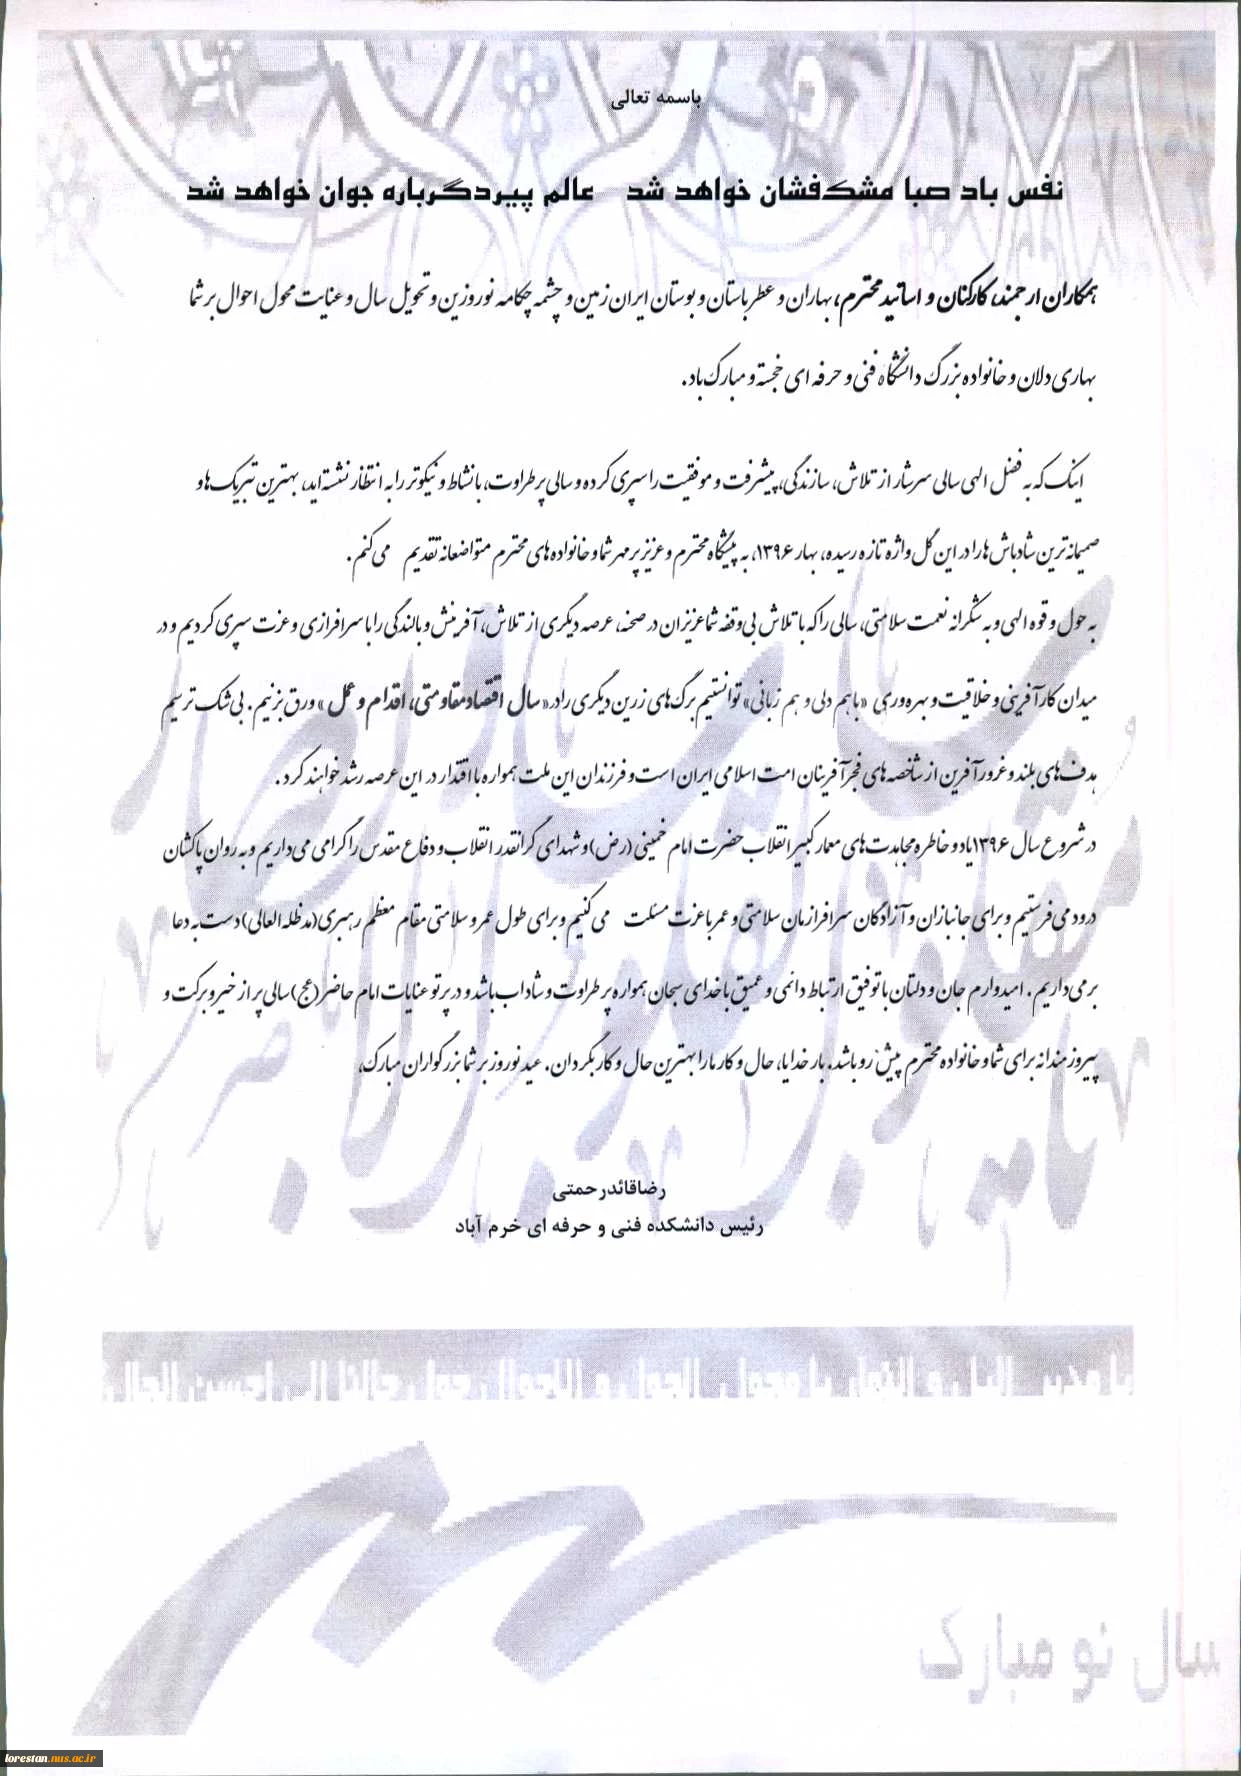 باسمه تعالی
نفس باد صبا مشک‌فشان خواهد شد عالم پیر دگرباره جوان خواهد شد
همکاران ارجمند، کارکنان و اساتید محترم، بهاران و عطر باستان و بوستان ایران زمین و چشمه چکامه نوروزین و تحویل سال و عنایت محول احوال بر شما
بهاری دلان و خانواده بزرگ دانشگاه فنی و حرفه ای خجسته و مبارک باد.
اینک که به فضل الهی سالی سرشار از تلاش، سازندگی، پیشرفت و موفقیت را سپری کرده و سالی پر طراوت، با نشاط و نیکوتر را به انتظار نشسته‌اید، بهترین تبریک‌ها و
صمیمانه‌ترین شادباش‌ها را در این گل واژه تازه رسیده، بهار ۱۳۹۶، به پیشگاه محترم و عزیز پر مهر شما و خانواده‌های محترم متواضعانه تقدیم می‌کنم.
به حول و قوه الهی و به شکرانه نعمت سلامتی، سالی را که با تلاش بی‌وقفه شما عزیزان در صحنه، عرصه دیگری از تلاش، آفرینش و بالندگی را با سرافرازی و عزت سپری کردیم و در
میدان کارآفرینی و خلاقیت و بهره‌وری «با هم دلی و هم زبانی» توانستیم برگ‌های زرین دیگری را در «سال اقتصاد مقاومتی، اقدام و عمل» ورق بزنیم. بی‌شک ترسیم
هدف‌های بلند و غرورآفرین از شاخصه‌های فجرآفرینان امت اسلامی ایران است و فرزندان این ملت همواره با اقتدار در این عرصه رشد خواهند کرد.
در شروع سال ۱۳۹۶ یاد و خاطره مجاهدت‌های معمار کبیر انقلاب حضرت امام خمینی (رض) و شهدای گرانقدر انقلاب و دفاع مقدس را گرامی می‌داریم و به روان پاکشان
درود می‌فرستیم و برای جانبازان و آزادگان سرافرازمان سلامتی و عمر با عزت مسئلت می‌کنیم و برای طول عمر و سلامتی مقام معظم رهبری(مدظله‌العالی) دست به دعا
بر می‌داریم. امیدوارم جان و دلتان با توفیق ارتباط دائمی و عمیق با خدای سبحان همواره پر طراوت و شاداب باشد و در پرتو عنایات امام حاضر(عج) سالی پر از خیر و برکت و
پیروزمندانه برای شما و خانواده محترم پیش رو باشد. بار خدایا، حال و کار ما را بهترین حال و کار بگردان. عید نوروز بر شما بزرگواران مبارک،
رضا قائدرحمتی
رئیس دانشکده فنی و حرفه ای خرم آباد
سال نو مبارک
lorestan.nus.ac.ir